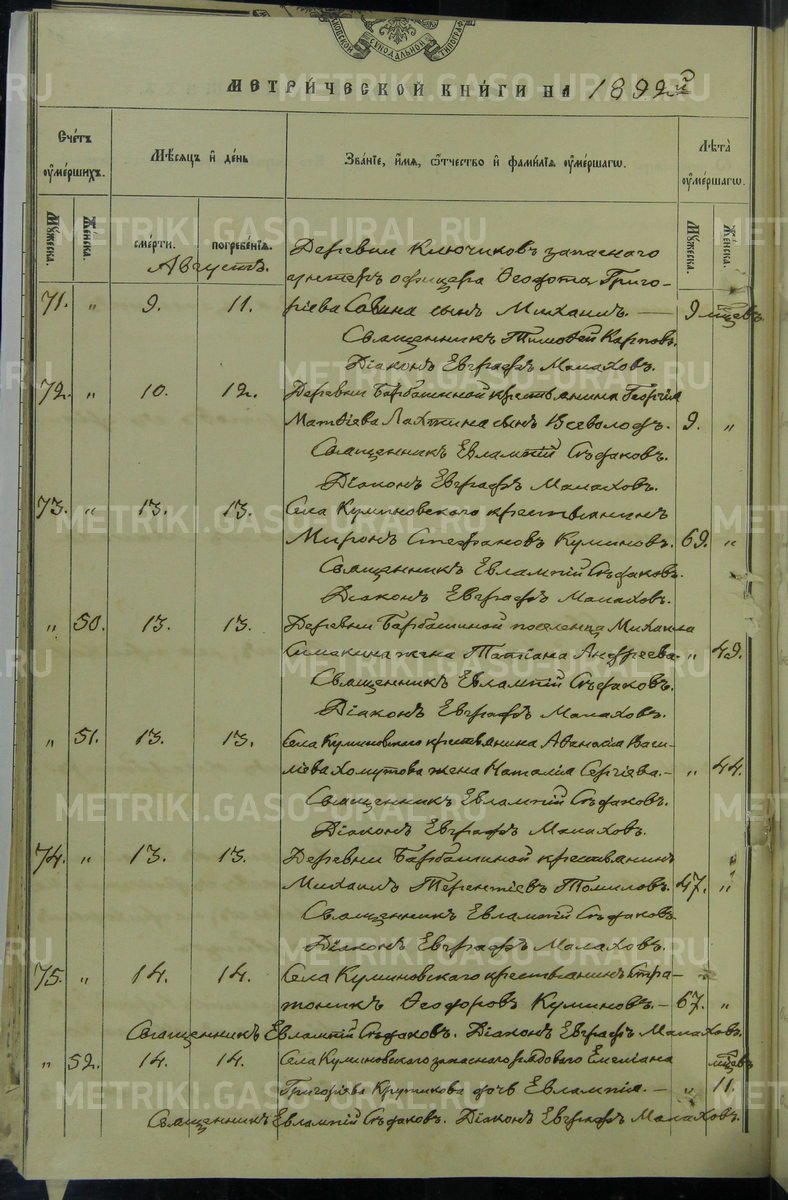 СУНОДАЛЬНОЙ ТУПОГРАФ
МЕТРИ́ЧЕСКОЙ КНИ́ГИ НА 1892й
Сче́тъ ᲂу҆ме́ршихъ.
Мѣ́сяцъ и҆ де́нь
Зва́нїе, и҆́мѧ, ѻ҆́тчество и҆ фами́лїѧ ᲂу҆ме́ршагѡ.
Лѣ̑та ᲂу҆ме́ршагѡ.
Мꙋ́жеска.
Же́нска.
сме́рти.
погребе́нїѧ.
Мꙋ́жеска.
Же́нска.
Августъ.
Деревни Ключиковъ запаснаго
унтеръ офицера Ѳеодота Григо-
71. " 9. 11. ріева Савина сынъ Михаилъ. — 9 мѣсцевъ
Священникъ Тимоѳей Карповъ.
Діаконъ Евграфъ Малаховъ.
72. " 10. 12. Деревни Барбашиной крестьянина Георгія
Матѳіева Лахтина сынъ Всеволодъ. 9. "
Священникъ Евлампій Съфаковъ.
Діаконъ Евграфъ Малаховъ.
73. " 13. 13. Села Куминовскаго крестьянинъ
Миронъ Стефановъ Куминовъ. 69. "
Священникъ Евлампій Съфаковъ.
Діаконъ Евграфъ Малаховъ.
" 50. 13. 13. Деревни Барбашиной поселенца Михаила
Симакина жена Татіана Андреева. " 49.
Священникъ Евлампій Съфаковъ.
Діаконъ Евграфъ Малаховъ.
" 51. 13. 13. Села Куминовскаго крестьянина Аѳанасія Васи-
ліева Хомутова жена Наталія Сергіева. — " 44.
Священникъ Евлампій Съфаковъ.
Діаконъ Евграфъ Малаховъ.
74. " 13. 13. Деревни Барбашиной крестьянинъ
Михаилъ Терентіевъ Томиловъ. 47. "
Священникъ Евлампій Съфаковъ
Діаконъ Евграфъ Малаховъ.
75. " 14. 14. Села Куминовскаго крестьянинъ Стра-
тоникъ Ѳеодоровъ Куминовъ. — 67. "
Священникъ Евлампій Съфаковъ. Діаконъ Евграфъ Малаховъ.
" 52. 14. 14. Села Куминовскаго запаснаго рядоваго Емеліана мѣсцевъ
Григоріева Крутикова дочь Евлампія. — " 11.
Священникъ Евлампій Съфаковъ. Діаконъ Евграфъ Малаховъ.
METRIKI.GASO-URAL.RU